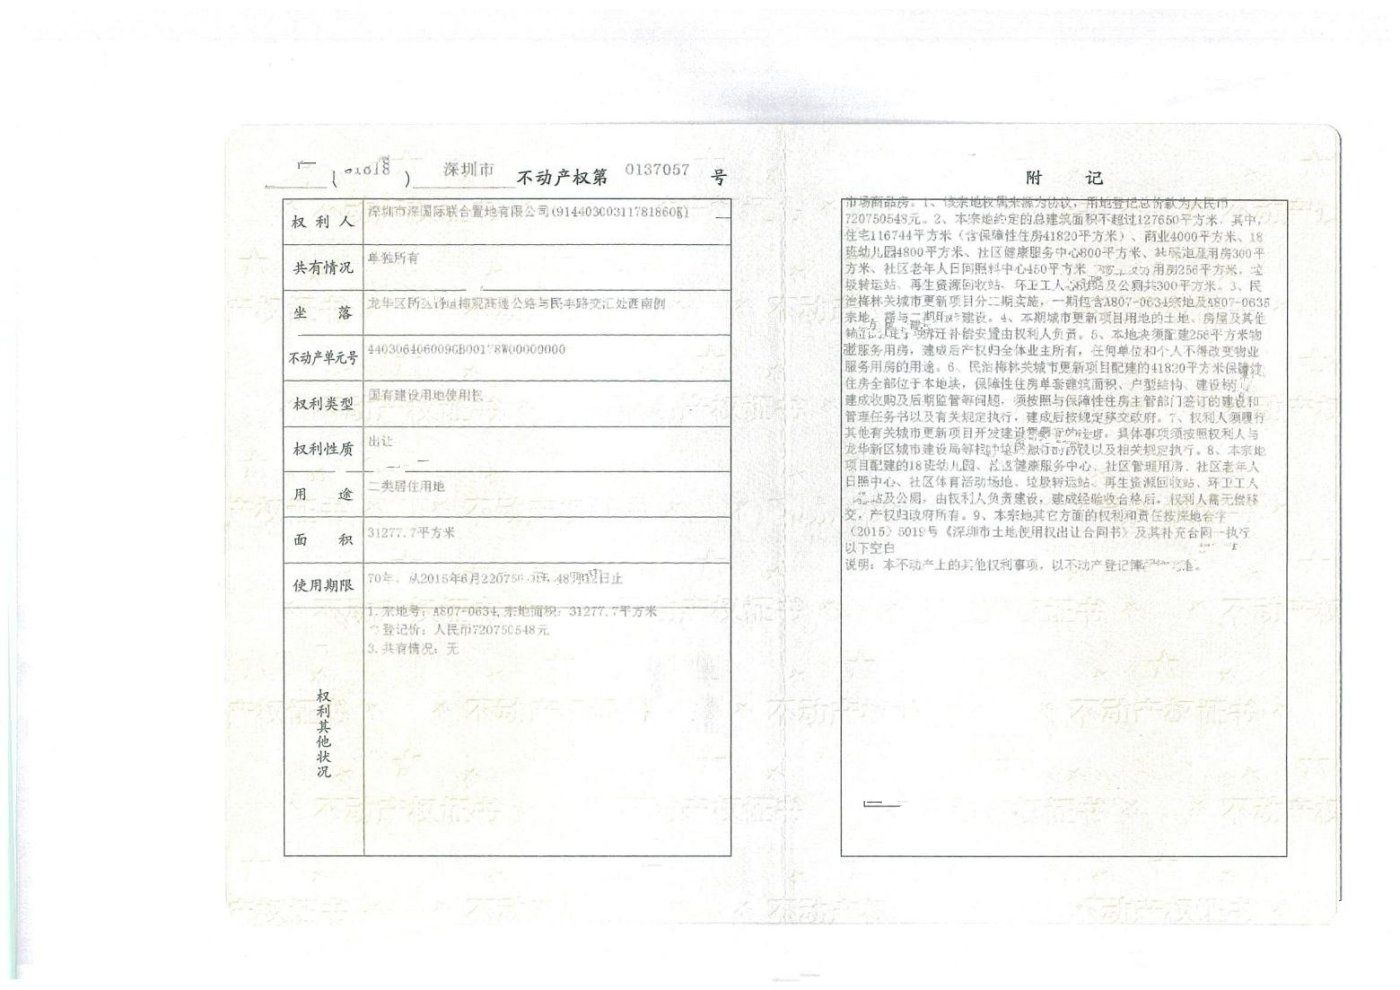 深圳市 不动产权第 0137057 号
权利人 深圳市深国际联合置地有限公司(91440300311781860K)
共有情况 单独所有
坐落 龙华区 梅观高速公路与民丰路交汇处西南侧
不动产单元号 440306406009GB00178W00000000
权利类型 国有建设用地使用权
权利性质 出让
用途 二类居住用地
面积 31277.7平方米
使用期限 70年, 从2015年6月 日止
权利其他状况
1.宗地号: A807-0634,宗地面积: 31277.7平方米
登记价: 人民币720750548元
3.共有情况: 无
附 记
市场商品房。1、该宗地权属来源为协议, 用地登记总价款为人民币
720750548元。2、本宗地约定的总建筑面积不超过127650平方米, 其中,
住宅116744平方米（含保障性住房41820平方米）、商业4000平方米、18
班幼儿园4800平方米、社区健康服务中心800平方米、社区管理用房300平
方米、社区老年人日间照料中心450平方米 用房256平方米, 垃
圾转运站、再生资源回收站、环卫工人 站及公厕共300平方米。3、民
治梅林关城市更新项目分二期实施, 一期包含A807-0634宗地及A807-0635
宗地, 需与二期 建设。4、本期城市更新项目用地的土地、房屋及其他
拆迁补偿安置由权利人负责。5、本地块须配建256平方米物
业服务用房, 建成后产权归全体业主所有, 任何单位和个人不得改变物业
服务用房的用途。6、民治梅林关城市更新项目配建的41820平方米保障性
住房全部位于本地块, 保障性住房单套建筑面积、户型结构、建设标
建成收购及后期监管等问题, 须按照与保障性住房主管部门签订的建设和
管理任务书以及有关规定执行, 建成后按规定移交政府。7、权利人须履行
其他有关城市更新项目开发建设 , 具体事项须按照权利人与
龙华新区城市建设局等 的协议以及相关规定执行。8、本宗地
项目配建的18班幼儿园、社区健康服务中心、社区管理用房、社区老年人
日照中心、社区体育活动场地、垃圾转运站、再生资源回收站、环卫工人
站及公厕, 由权利人负责建设, 建成经验收合格后, 权利人需无偿移
交, 产权归政府所有。9、本宗地其它方面的权利和责任按深地合字
（2015）5019号《深圳市土地使用权出让合同书》及其补充合同一执行
以下空白
说明: 本不动产上的其他权利事项, 以不动产登记簿 准。